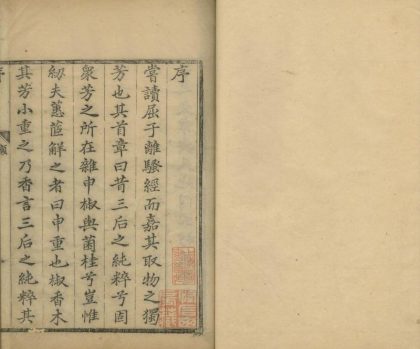 序
嘗讀屈子離騷經而嘉其取物之獨
芳也其首章曰昔三后之純粹兮固
衆芳之所在雜申椒與菌桂兮豈惟
紉夫蕙茝解之者曰申重也椒香木
其芳小重之乃香言三后之純粹其
序